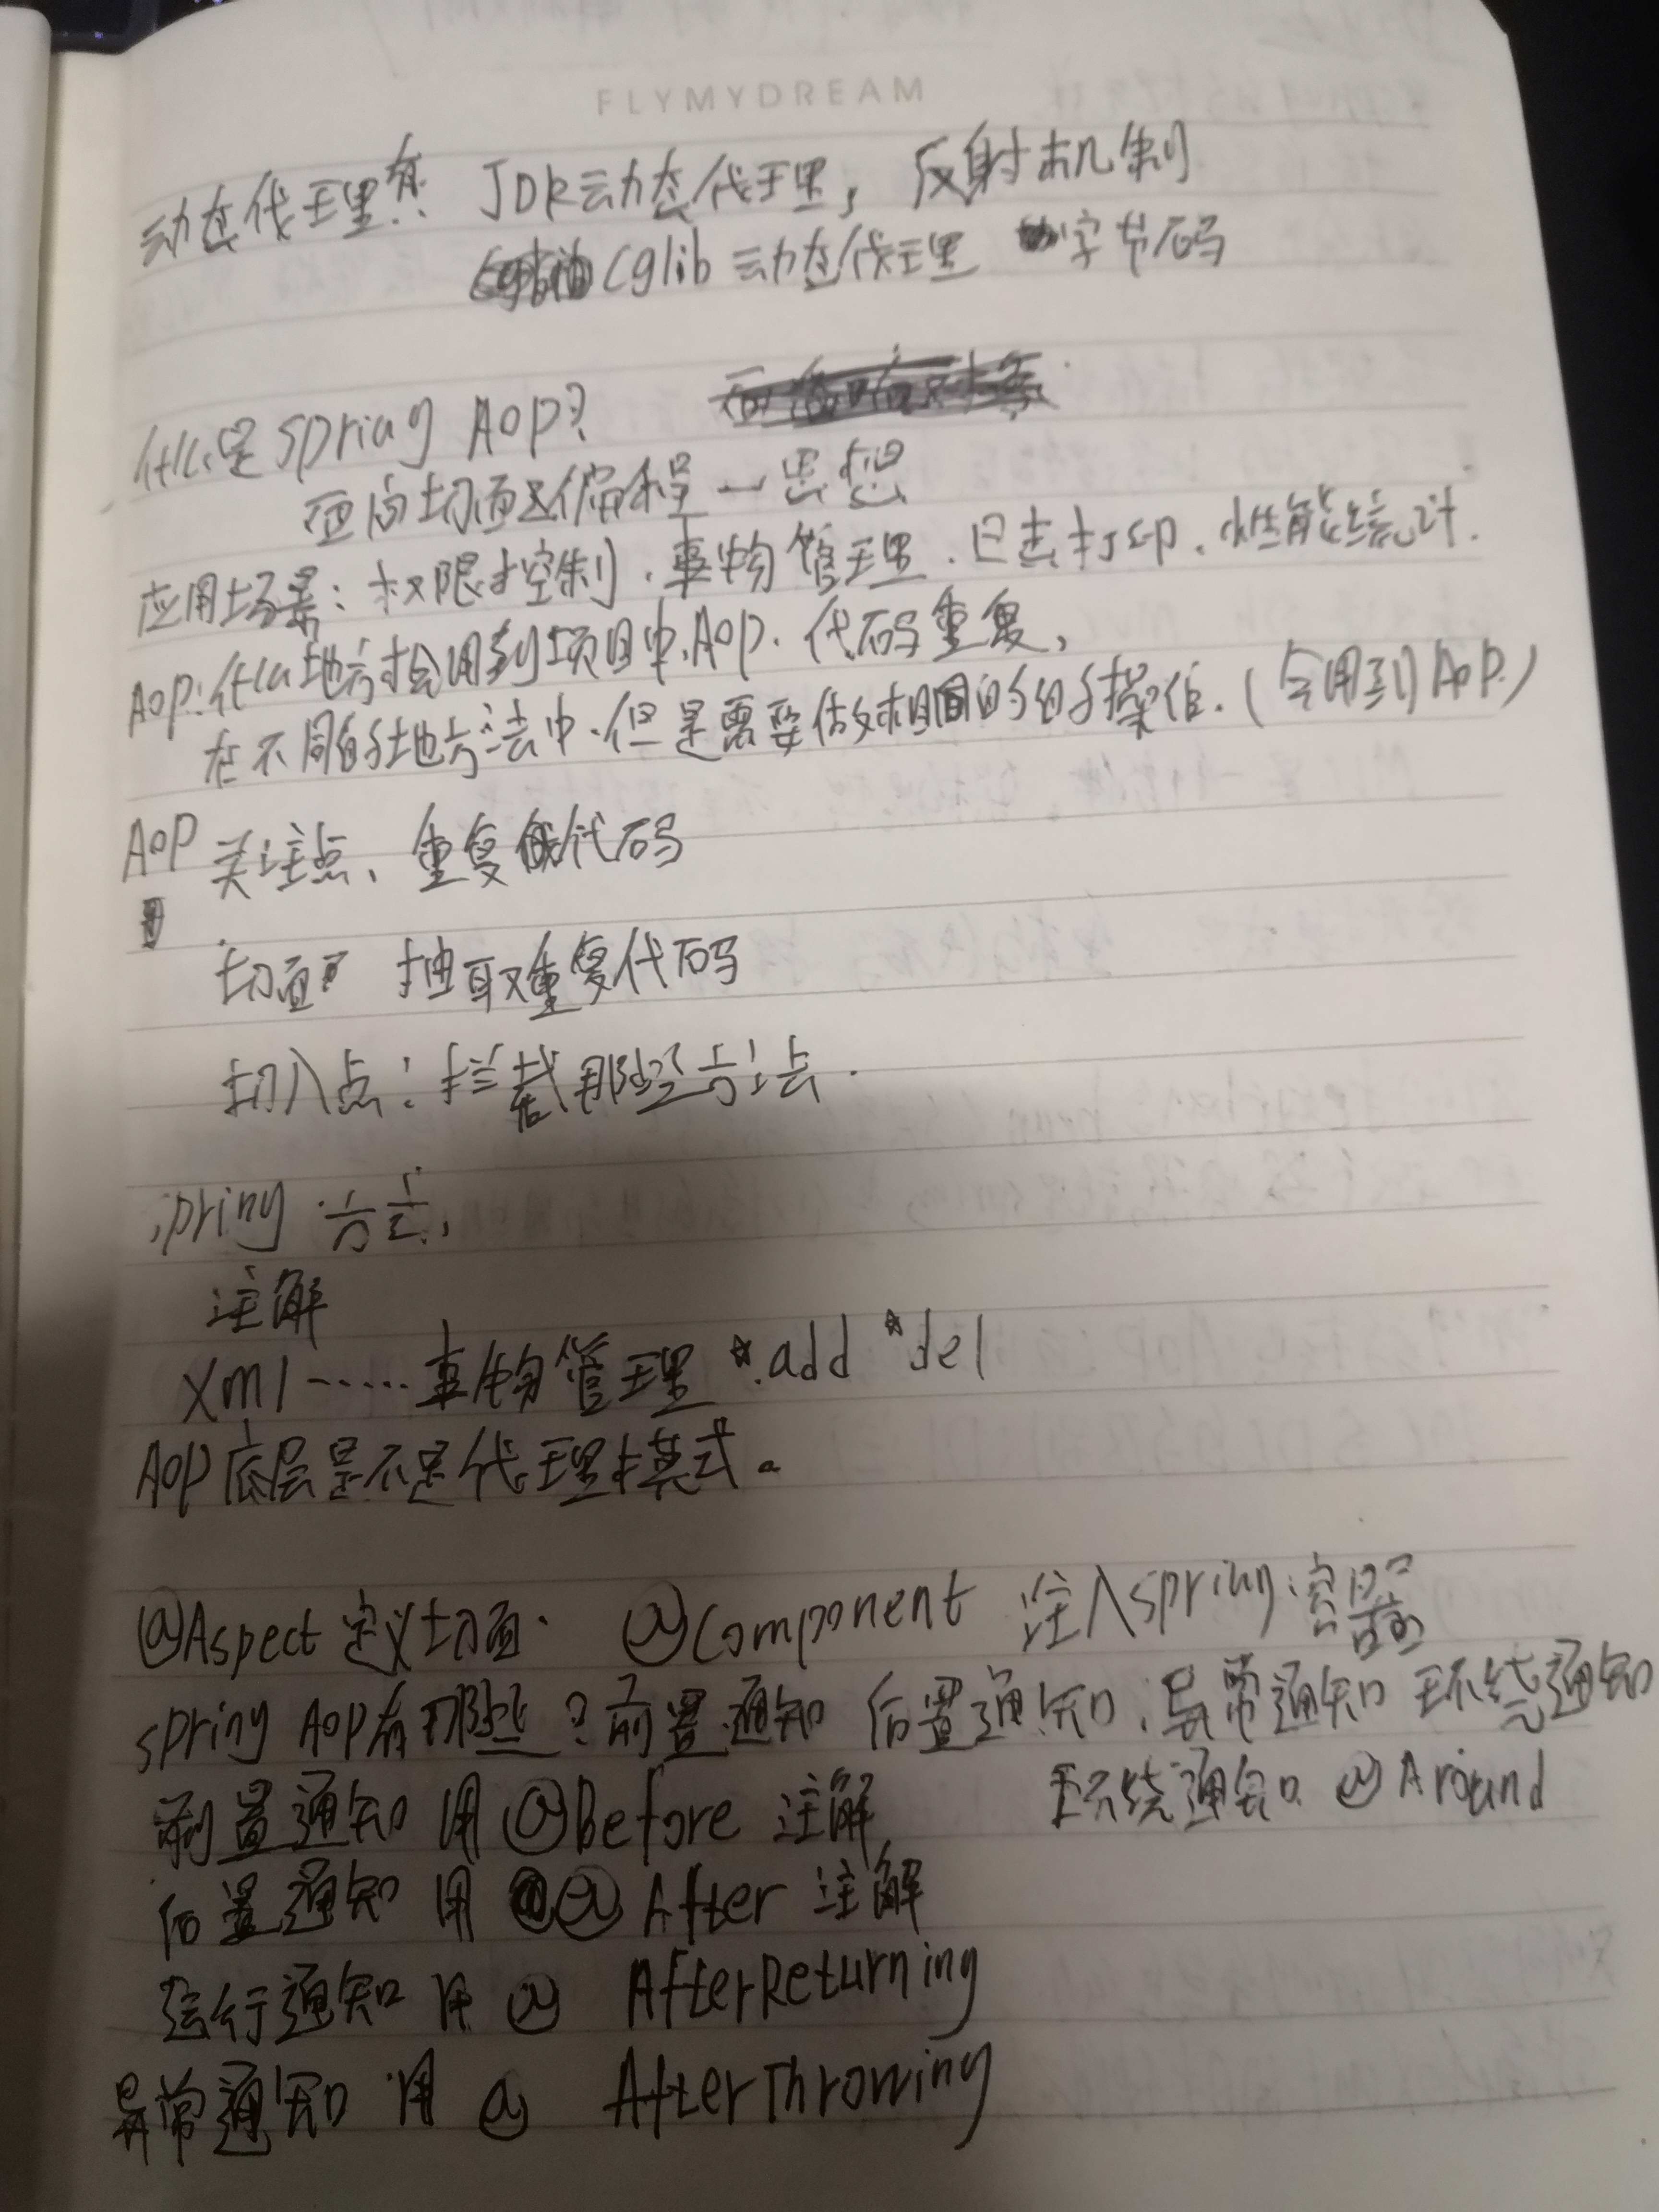 FLYMYDREAM
动态代理有: JDK动态代理, 反射机制
Cglib 动态代理 字节码
什么是spring AOP?
面向切面编程 一 思想
应用场景: 权限控制、事物管理、日志打印、性能统计.
AOP:什么地方会用到项目中AOP. 代码重复,
在不同的地方法中.但是需要做相同的操作.(会用到AOP)
AOP 关注点、重复代码
切面 抽取重复代码
切入点: 拦截那些方法.
spring 方式,
注解
Xml ...... 事物管理 *.add *del
AOP底层是不是代理模式。
@Aspect 定义切面. @Component 注入spring容器
spring AOP有那些?前置通知 后置通知,异常通知 环绕通知
前置通知 用 @Before 注解 环绕通知 @Around
后置通知 用 @After 注解
运行通知 用@ AfterReturning
异常通知 用@ AfterThrowing